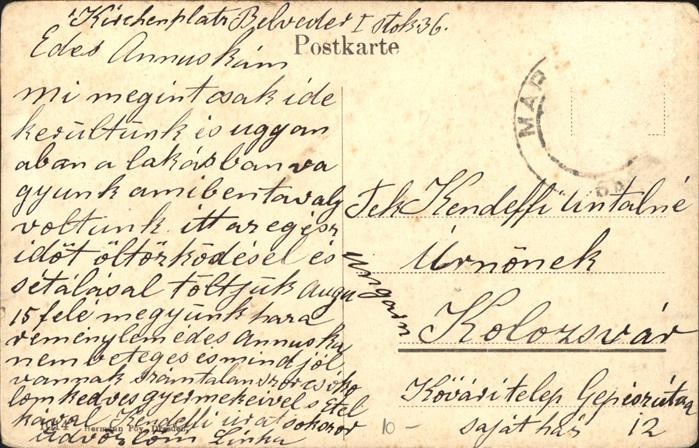 Kirchenplatz Belveder I stok 36.
Postkarte
Edes Annuskám
mi megint csak ide
kerültünk és ugyan
aban a lakásban va
gyunk amiben tavaly
voltunk itt az egész
időt öltözködésel és
sétálásal töltjük Augu
15 felé megyünk haza
reménylem édes Annuska
nem beteges és mind jól
vannak számtalanszor csóko
lom kedves gyermekeivel s Etel
kával Kendeffi urat sokszor
üdvözlöm Linka
MAR
Tek Kendeffi Antalné
Úrnőnek
Ungarn
Kolozsvár
Kővári telep Gépész utca
saját ház 12
10 -